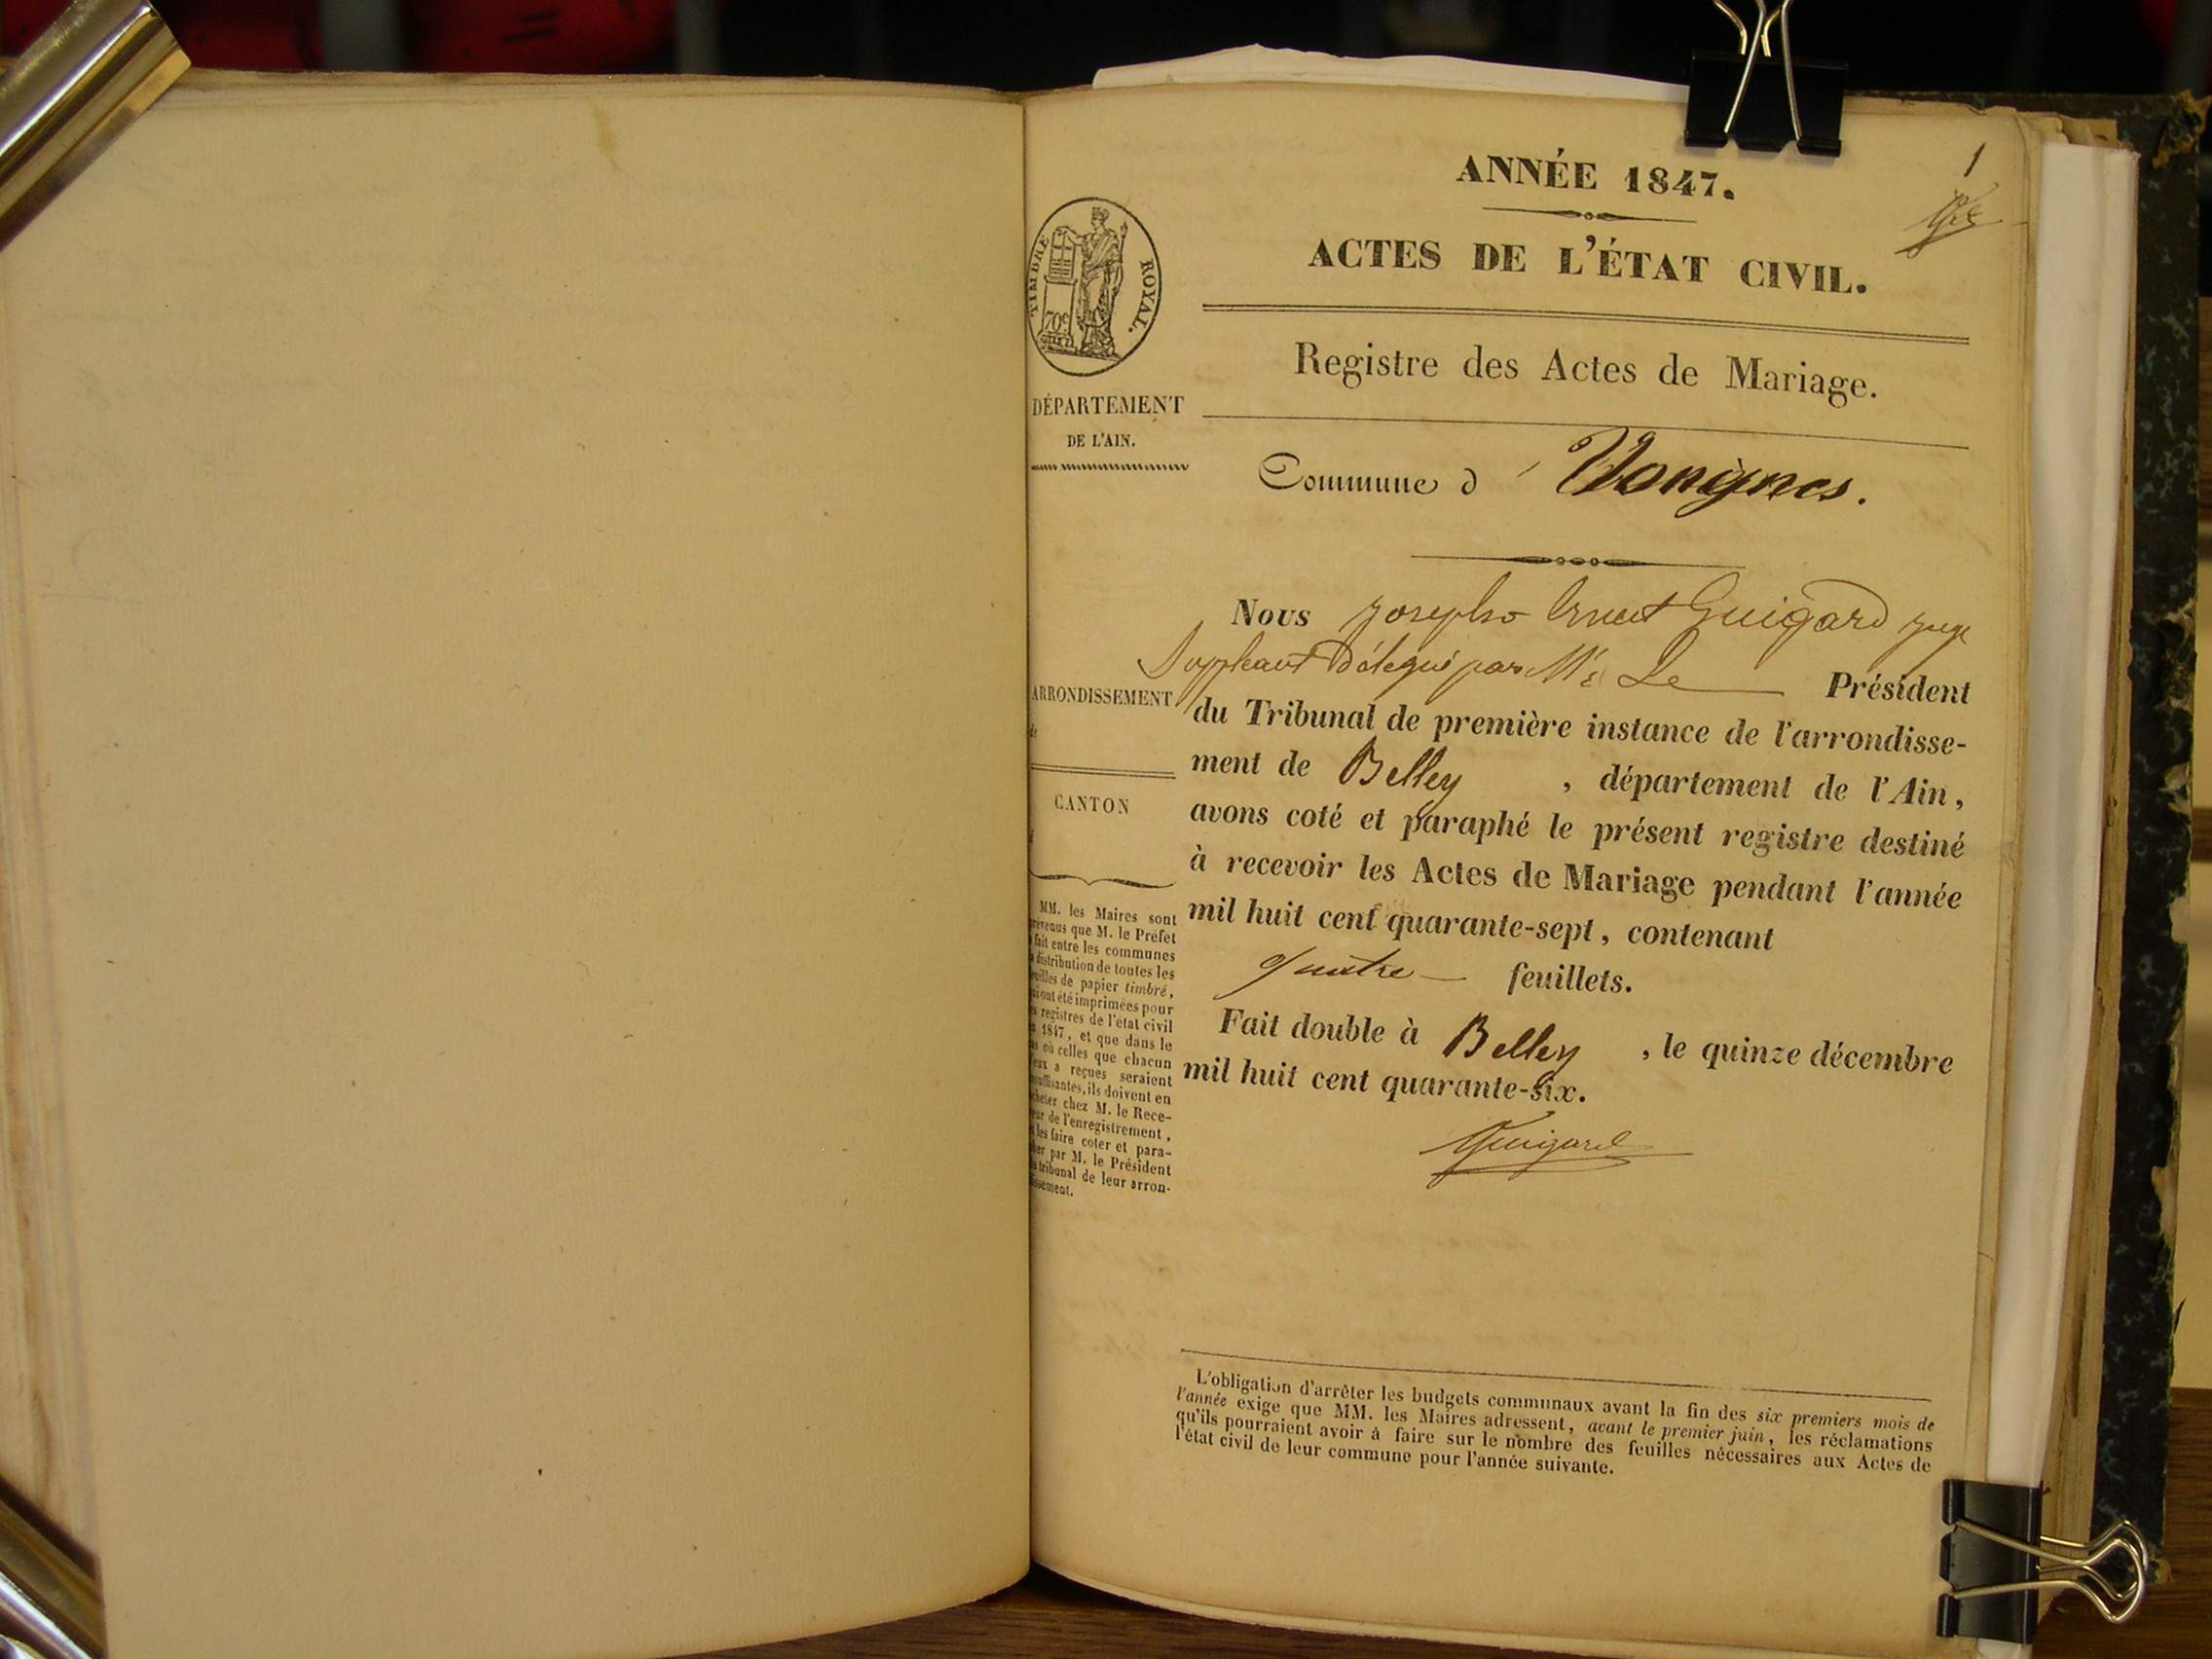 1
ANNÉE 1847.
ACTES DE L'ÉTAT CIVIL.
Registre des Actes de Mariage.
TIMBRE ROYAL.
70c
DÉPARTEMENT
DE L'AIN.
Commune d' Vongnes.
Nous Joseph Ernest Guigard juge
Suppleant Délégué par Mr Le Président
du Tribunal de première instance de l'arrondisse-
ment de Belley, département de l'Ain,
avons coté et paraphé le présent registre destiné
à recevoir les Actes de Mariage pendant l'année
mil huit cent quarante-sept, contenant
quatre feuillets.
Fait double à Belley, le quinze décembre
mil huit cent quarante-six.
Guigard
ARRONDISSEMENT
de
CANTON
MM. les Maires sont
prévenus que M. le Préfet
a fait entre les communes
la distribution de toutes les
feuilles de papier timbré,
qui ont été imprimées pour
les registres de l'état civil
en 1847, et que dans le
cas où celles que chacun
d'eux a reçues seraient
insuffisantes, ils doivent en
acheter chez M. le Rece-
veur de l'enregistrement,
et les faire coter et para-
pher par M. le Président
du tribunal de leur arron-
dissement.
L'obligation d'arrêter les budgets communaux avant la fin des six premiers mois de
l'année exige que MM. les Maires adressent, avant le premier juin, les réclamations
qu'ils pourraient avoir à faire sur le nombre des feuilles nécessaires aux Actes de
l'état civil de leur commune pour l'année suivante.